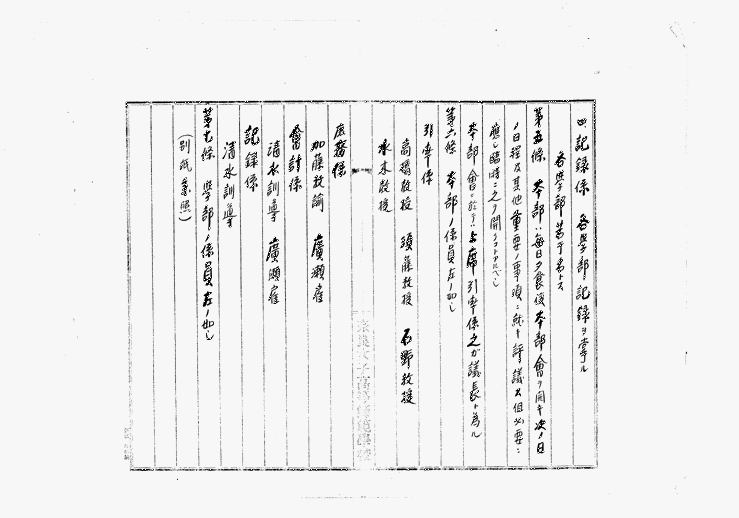 四、記録係 各學部ノ記録ヲ掌ル
各學部若干名トス
第五條 本部ハ毎日夕食後本部會ヲ開キ次ノ日
ノ日程及其他重要ノ事項ニ就キ評議ス但必要ニ
應シ臨時ニ之ヲ開クコトアルベシ
本部會ニ於テハ首席引率係之ガ議長ト為ル
第六條 本部ノ係員左ノ如シ
引率係
高橋教授 須藤教授 石野教授
水木教授
庶務係
加藤教諭 廣瀬雇
會計係
清水訓導 廣瀬雇
記録係
清水訓導
第七條 學部ノ係員左ノ如シ
(別紙参照)
奈良女子高等師範學校